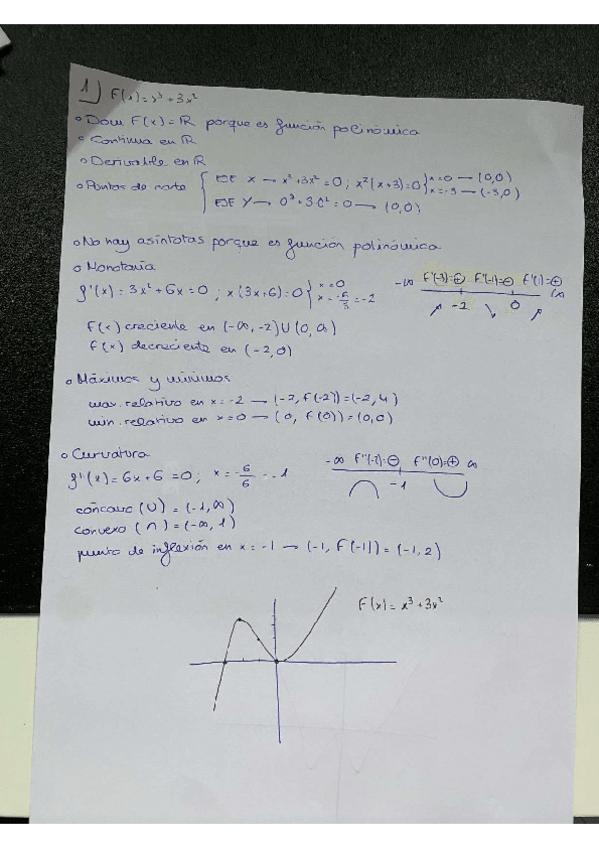 1) F(x)=x³+3x²
• Dom F(x)=ℝ porque es función polinómica
• Continua en ℝ
• Derivable en ℝ
• Puntos de corte { EJE X → x³+3x²=0; x²(x+3)=0 { x=0 → (0,0)
x=-3 → (-3,0)
EJE Y → 0³+3·0²=0 → (0,0)
• No hay asíntotas porque es función polinómica
• Monotonía
f'(x)=3x²+6x=0; x(3x+6)=0 { x=0
x=-6/3=-2
-∞ F'(-3)=⊕ F'(-1)=⊖ F'(1)=⊕ ∞
-2 0
F(x) creciente en (-∞,-2)∪(0,∞)
f(x) decreciente en (-2,0)
• Máximos y mínimos
max. relativo en x=-2 → (-2,f(-2))=(-2,4)
min. relativo en x=0 → (0, f(0))=(0,0)
• Curvatura
f''(x)=6x+6=0; x=-6/6=-1
-∞ F''(-2)=⊖ F''(0)=⊕ ∞
-1
cóncavo (∪)=(-1,∞)
convexo (∩)=(-∞,1)
punto de inflexión en x=-1 → (-1, F(-1))=(-1,2)
F(x)=x³+3x²